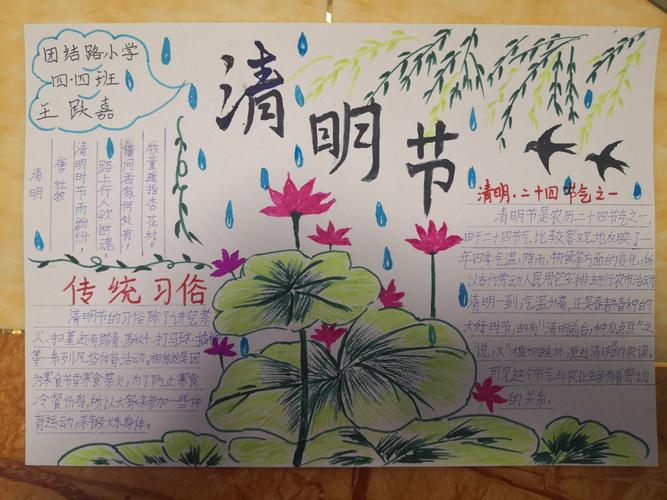 团结路小学
四·四班
王跃嘉
清明节
清明
唐 杜牧
清明时节雨纷纷，
路上行人欲断魂。
借问酒家何处有，
牧童遥指杏花村。
传统习俗
清明节的习俗除了讲究禁
火、扫墓，还有踏青、荡秋千、打马球、插柳
等一系列风俗体育活动。相传这是因
为寒食节要寒食禁火，为了防止寒食
冷餐伤身，所以大家来参加一些体
育运动，来锻炼身体。
清明·二十四节气之一
清明节是农历二十四节气之一，
由于二十四节气比较客观地反映了一
年四季气温、降雨、物候等方面的变化，所
以古代劳动人民用它安排进行农事活动
清明一到，气温升高，正是春耕春种的
大好时节，故有「清明前后，种瓜点豆」之
说，又"植树造林，莫过清明"的农谚。
可见这个节气与农业生产有着密切
的关系。